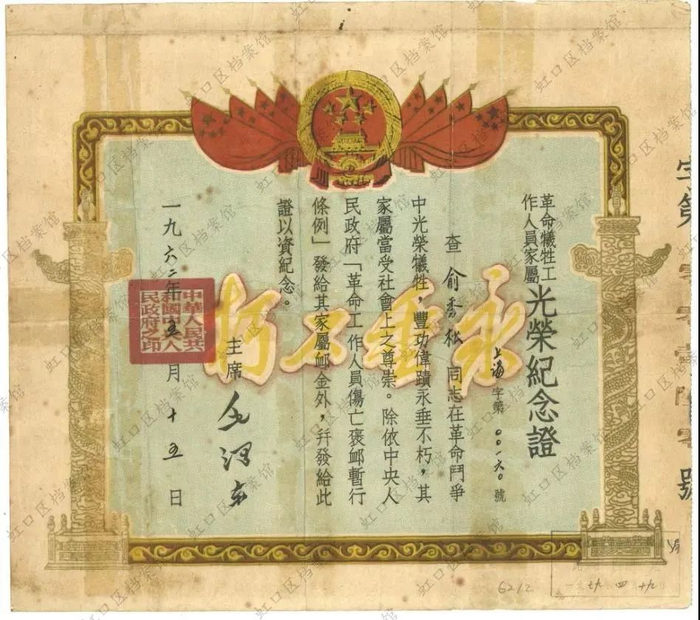 革命犧牲工
作人員家屬
光榮紀念證
上海字第00一六0號
查俞秀松同志在革命鬥爭
中光榮犧牲，豐功偉蹟永垂不朽，其
家屬當受社會上之尊崇。除依中央人
民政府「革命工作人員傷亡褒卹暫行
條例」發給其家屬卹金外，幷發給此
證以資紀念。
主席 毛澤東
一九六二年五月十五日
中華人民共
和國中央人
民政府之印
永垂不朽
字第零零壹陸零號
6212
虹口区档案馆